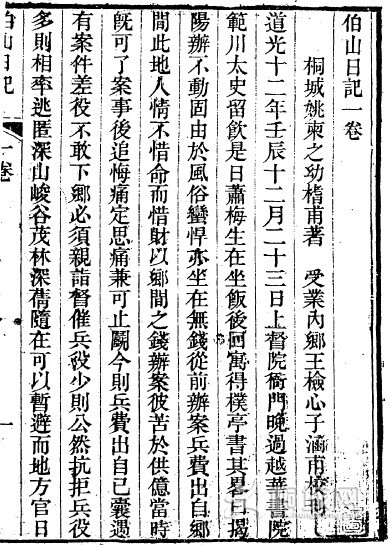 伯山日記一卷
桐城姚柬之幼楷甫著　受業內鄉王檢心子涵甫校刊
道光十二年壬辰十二月二十三日上督院衙門晚過越華書院
範川太史留飲是日蕭梅生在坐飯後回寓得樸亭書其畧曰揭
陽辦不動固由於風俗蠻悍亦坐在無錢從前辦案兵費出自鄉
間此地人情不惜命而惜財以鄉間之錢辦案彼苦於供億當時
既可了案事後追悔痛定思痛兼可止鬬今則兵費出自己囊遇
有案件差役不敢下鄉必須親詣督催兵役少則公然抗拒兵役
多則相率逃匿深山峻谷茂林深菁隨在可以暫避而地方官日
伯山日記
一卷
一